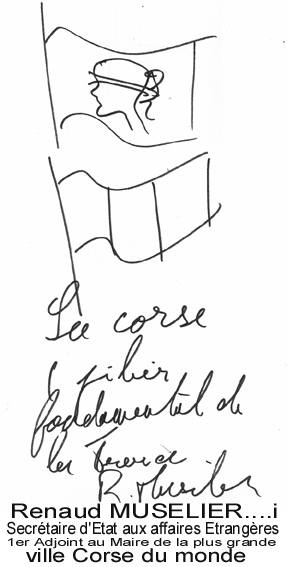 La corse
pilier
fondamental de
la France
R. Muselier
Renaud MUSELIER....i
Secrétaire d'Etat aux affaires Etrangères
1er Adjoint au Maire de la plus grande
ville Corse du monde